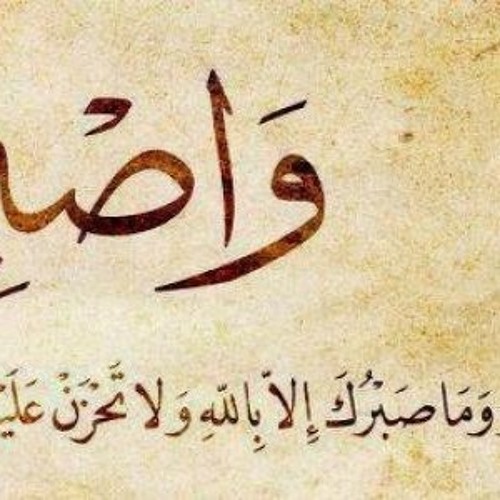 وَاصْ
وَمَا صَبْرُكَ إِلاَّ بِاللّهِ وَلاَ تَحْزَنْ